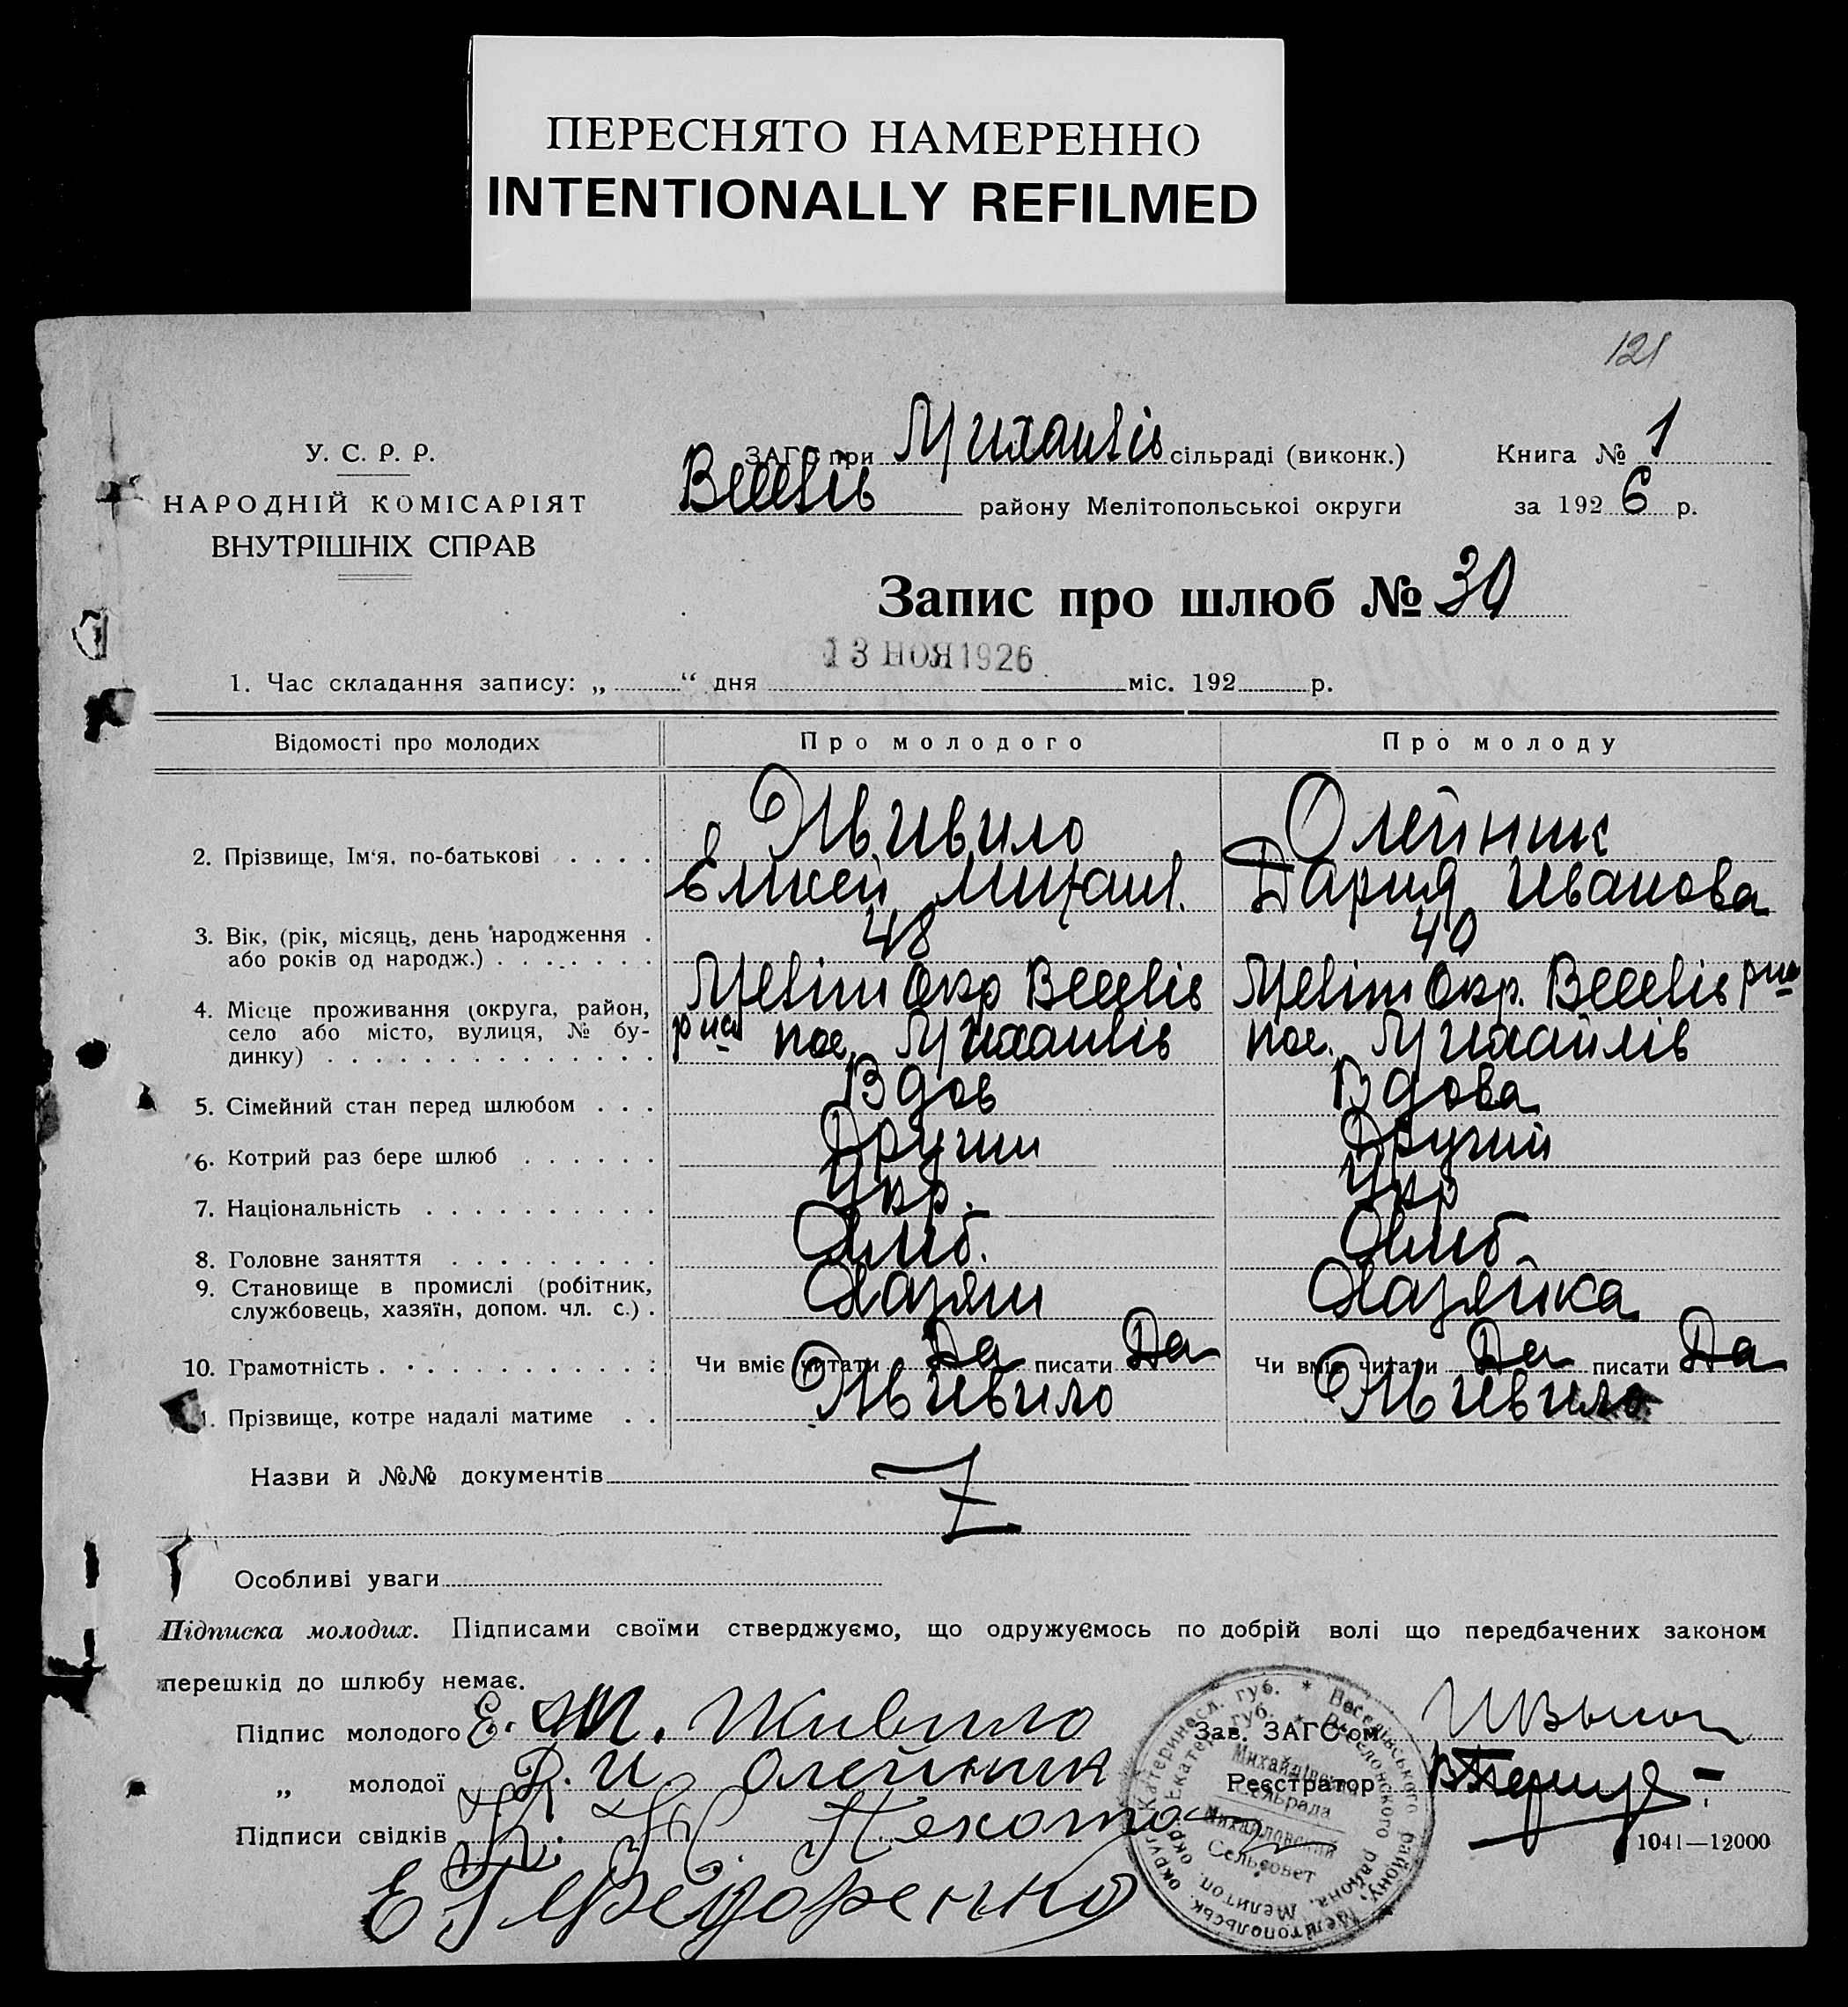 ПЕРЕСНЯТО НАМЕРЕННО
INTENTIONALLY REFILMED
121
У. С. Р. Р.
НАРОДНІЙ КОМІСАРІЯТ
ВНУТРІШНІХ СПРАВ
ЗАГС при Михайлів сільраді (виконк.)
Веселів району Мелітопольскоі округи
Книга № 1
за 1926 р.
Запис про шлюб № 30
1. Час складання запису: „ “ дня 13 НОЯ 1926 міс. 192 р.
Відомості про молодих Про молодого Про молоду
2. Прізвище, Ім‘я, по-батькові Живило Олейник
Елисей Михаил. Дария Иванова
3. Вік, (рік, місяць, день народження або років од народж.) 48 40
4. Місце проживання (округа, район, село або місто, вулиця, № будинку)
Меліт Окр Веселів Меліт Окр. Веселів
пос. Михайлів пос. Михайлів
5. Сімейний стан перед шлюбом Вдов Вдова
6. Котрий раз бере шлюб Другий Другий
7. Національність Укр. Укр
8. Головне заняття Хліб. Хліб.
9. Становище в промислі (робітник, службовець, хазяїн, допом. чл. с.) Хазяин Хазяйка
10. Грамотність Чи вміє читати Да писати Да Чи вміє читати Да писати Да
11. Прізвище, котре надалі матиме Живило Живило
Назви й №№ документів
Особливі уваги
Підписка молодих. Підписами своїми стверджуємо, що одружуємось по добрій волі що передбачених законом
перешкід до шлюбу немає.
Підпис молодого Е. М. Живило Зав. ЗАГС‘ом
„ молодої Д. И. Олейник Реєстратор
Підписи свідків
Е Г Федоренко
1041—12000
Михайлівська Сельрада
Михайловский Сельсовет